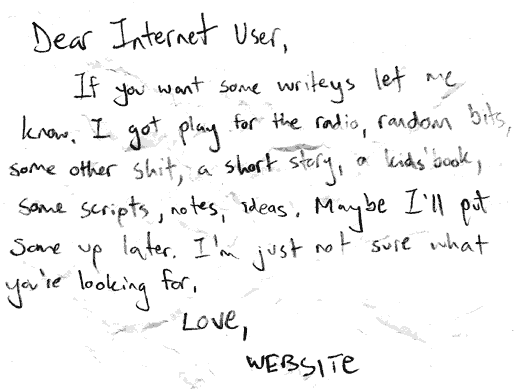 Dear Internet User,
If you want some writeys let me
know. I got play for the radio, random bits,
some other shit, a short story, a kids' book,
some scripts, notes, ideas. Maybe I'll put
some up later. I'm just not sure what
you're looking for.
LOVE,
WEBSITE